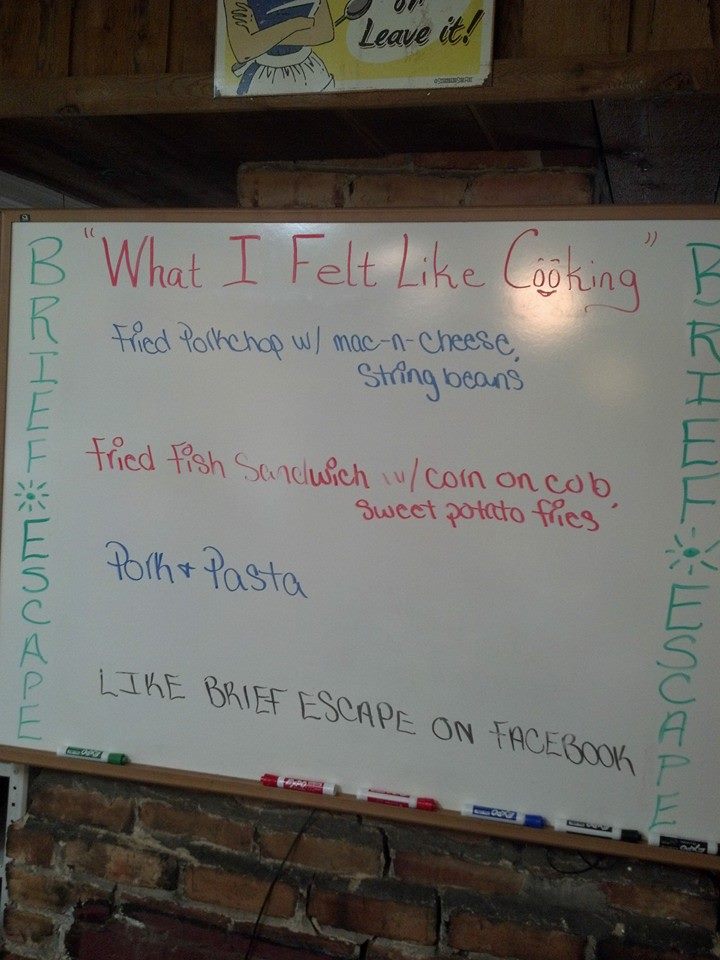 or
Leave it!
"What I Felt Like Cooking"
Fried Porkchop w/ mac-n-cheese,
String beans
Fried Fish Sandwich w/ corn on cob,
sweet potato fries
Pork & Pasta
LIKE BRIEF ESCAPE ON FACEBOOK
BRIEF ESCAPE
BRIEF ESCAPE
EXPO